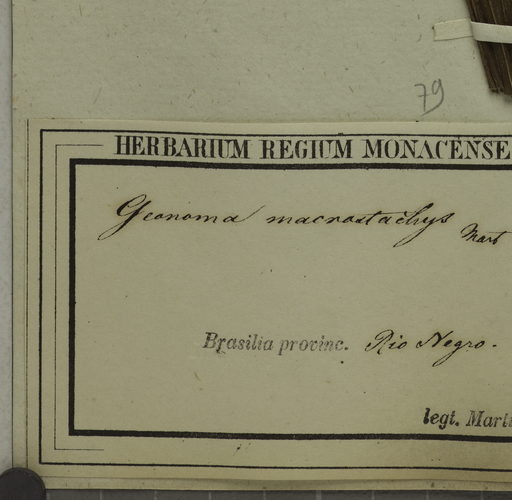 79
HERBARIUM REGIUM MONACENSE
Geonoma macrostachys Mart
Brasilia provinc. Rio Negro.
legt. Marti